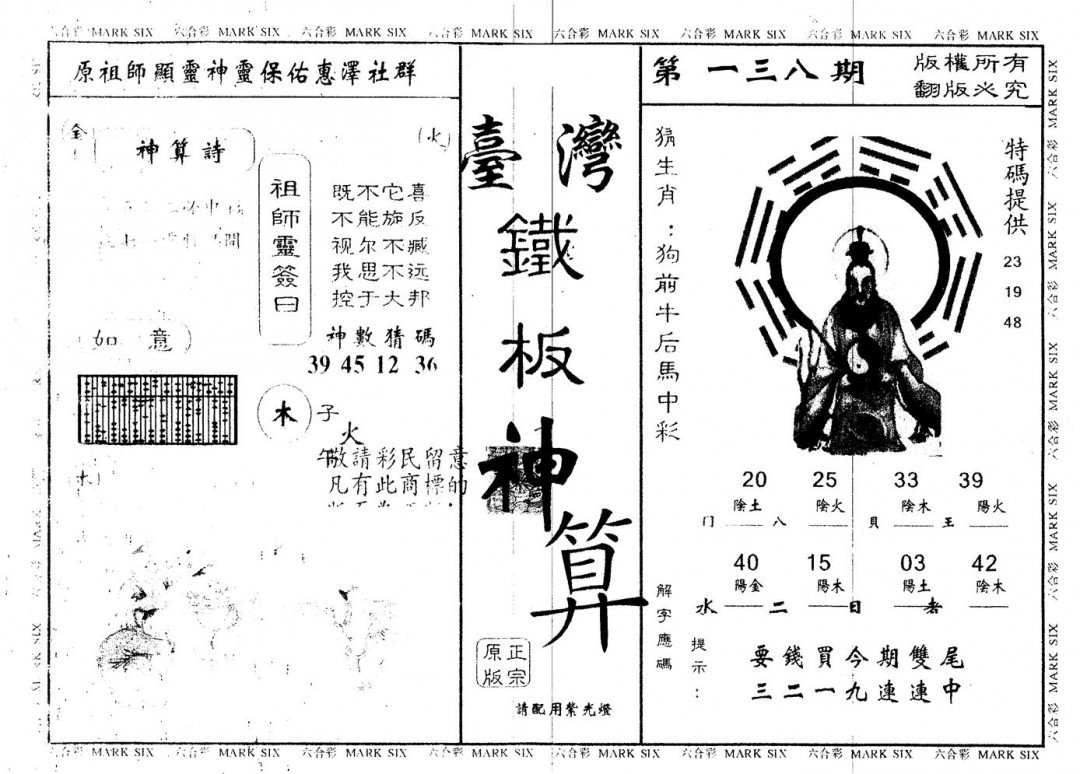 六合彩 MARK SIX 六合彩 MARK SIX 六合彩 MARK SIX 六合彩 MARK SIX 六合彩 MARK SIX 六合彩 MARK SIX 六合彩 MARK SIX 六合彩 MARK SIX
原祖師顯靈神靈保佑惠澤社群
金
神算詩
(火)
祖師靈簽曰
既不它喜
不能旋反
视尔不臧
我思不远
控于大邦
神數猜碼
39 45 12 36
如意
木
子
火
午
敬請彩民留意
凡有此商標的
(木)
臺灣
鐵
板
神
算
正宗
原版
請配用紫光燈
第一三八期
版權所有
翻版必究
猜生肖:狗前牛后馬中彩
特碼提供
23
19
48
20 25 33 39
陰土 陰火 陰木 陽火
门 八 貝 王
40 15 03 42
陽金 陽木 陽土 陰木
水 二 日 者
解字應碼
提示:
要錢買今期雙尾
三二一九連連中
六合彩 MARK SIX 六合彩 MARK SIX 六合彩 MARK SIX 六合彩 MARK SIX 六合彩 MARK SIX 六合彩 MARK SIX 六合彩 MARK SIX 六合彩 MARK SIX
六合彩 MARK SIX 六合彩 MARK SIX 六合彩 MARK SIX 六合彩 MARK SIX 六合彩 MARK SIX